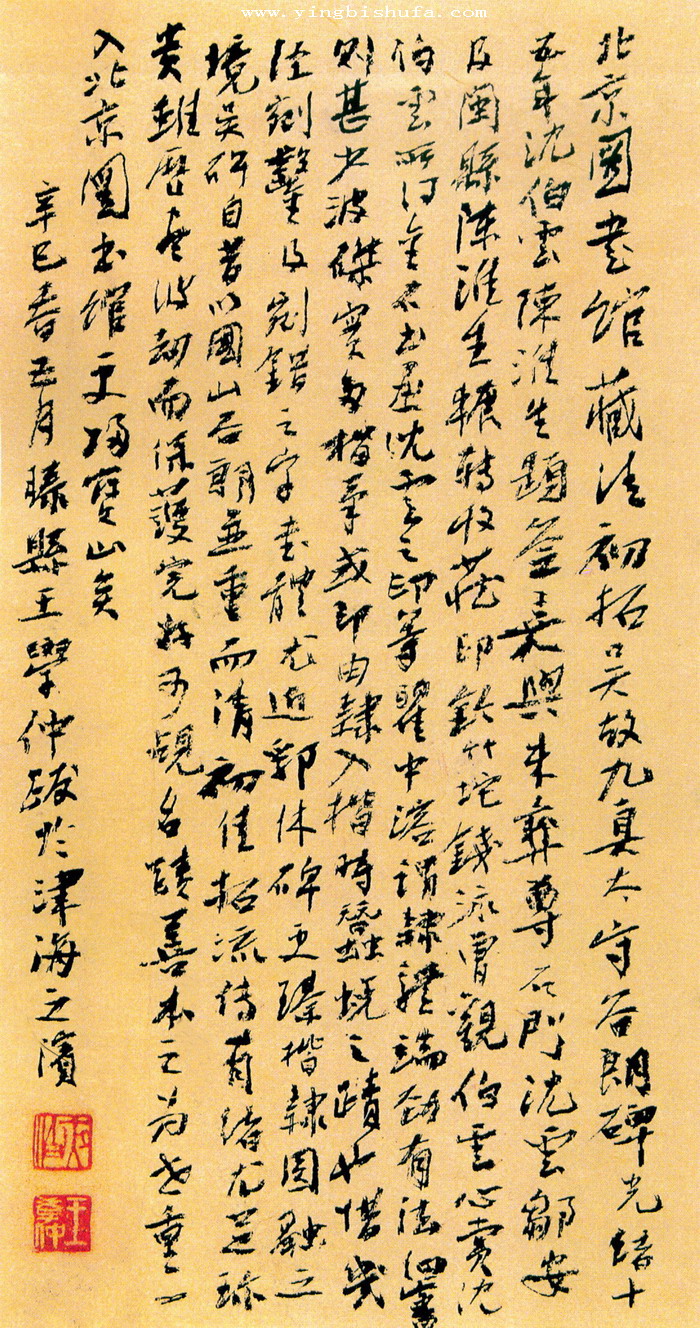 www.yingbishufa.com
北京圖書館藏清初拓吳故九真太守谷朗碑光緒十
五年沈伯雲陳淮生題簽裹與朱彝尊石門沈雲鄒安
及閩縣陳淮生輾轉收藏印鈐竹垞錢泳曾觀伯雲心賞沈
伯雲所得金石書畫沈雲之印等瞿中溶謂隸體端勁有法
則甚少波磔實與楷筆或即由隸入楷時發蛻之蹟也惜幾
經剜鑿及剜錯之字書體尤近郭休碑更臻楷隸圓融之
境吳碑自昔以國山谷朗並重而清初佳拓流傳有緒尤足珍
貴雖歷兵燹劫而保護完好可覘名蹟善本之為世重
入北京圖書館更歸寶山矣
辛巳春五月滕縣王學仲跋於津海之濱